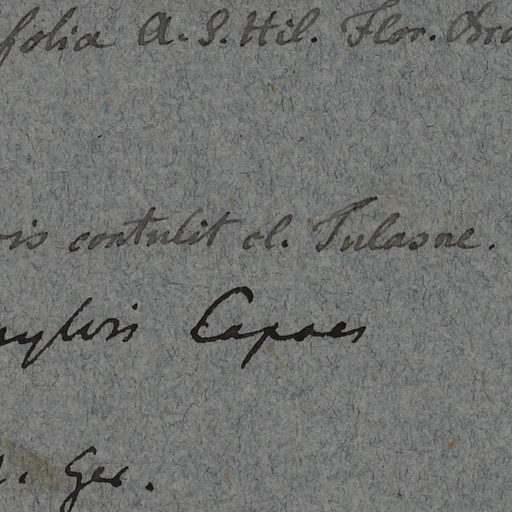 folia A. S. Hil. Flor. Bra
ris contulit cl. Tulasne.
sylvis Capoes
Ger.